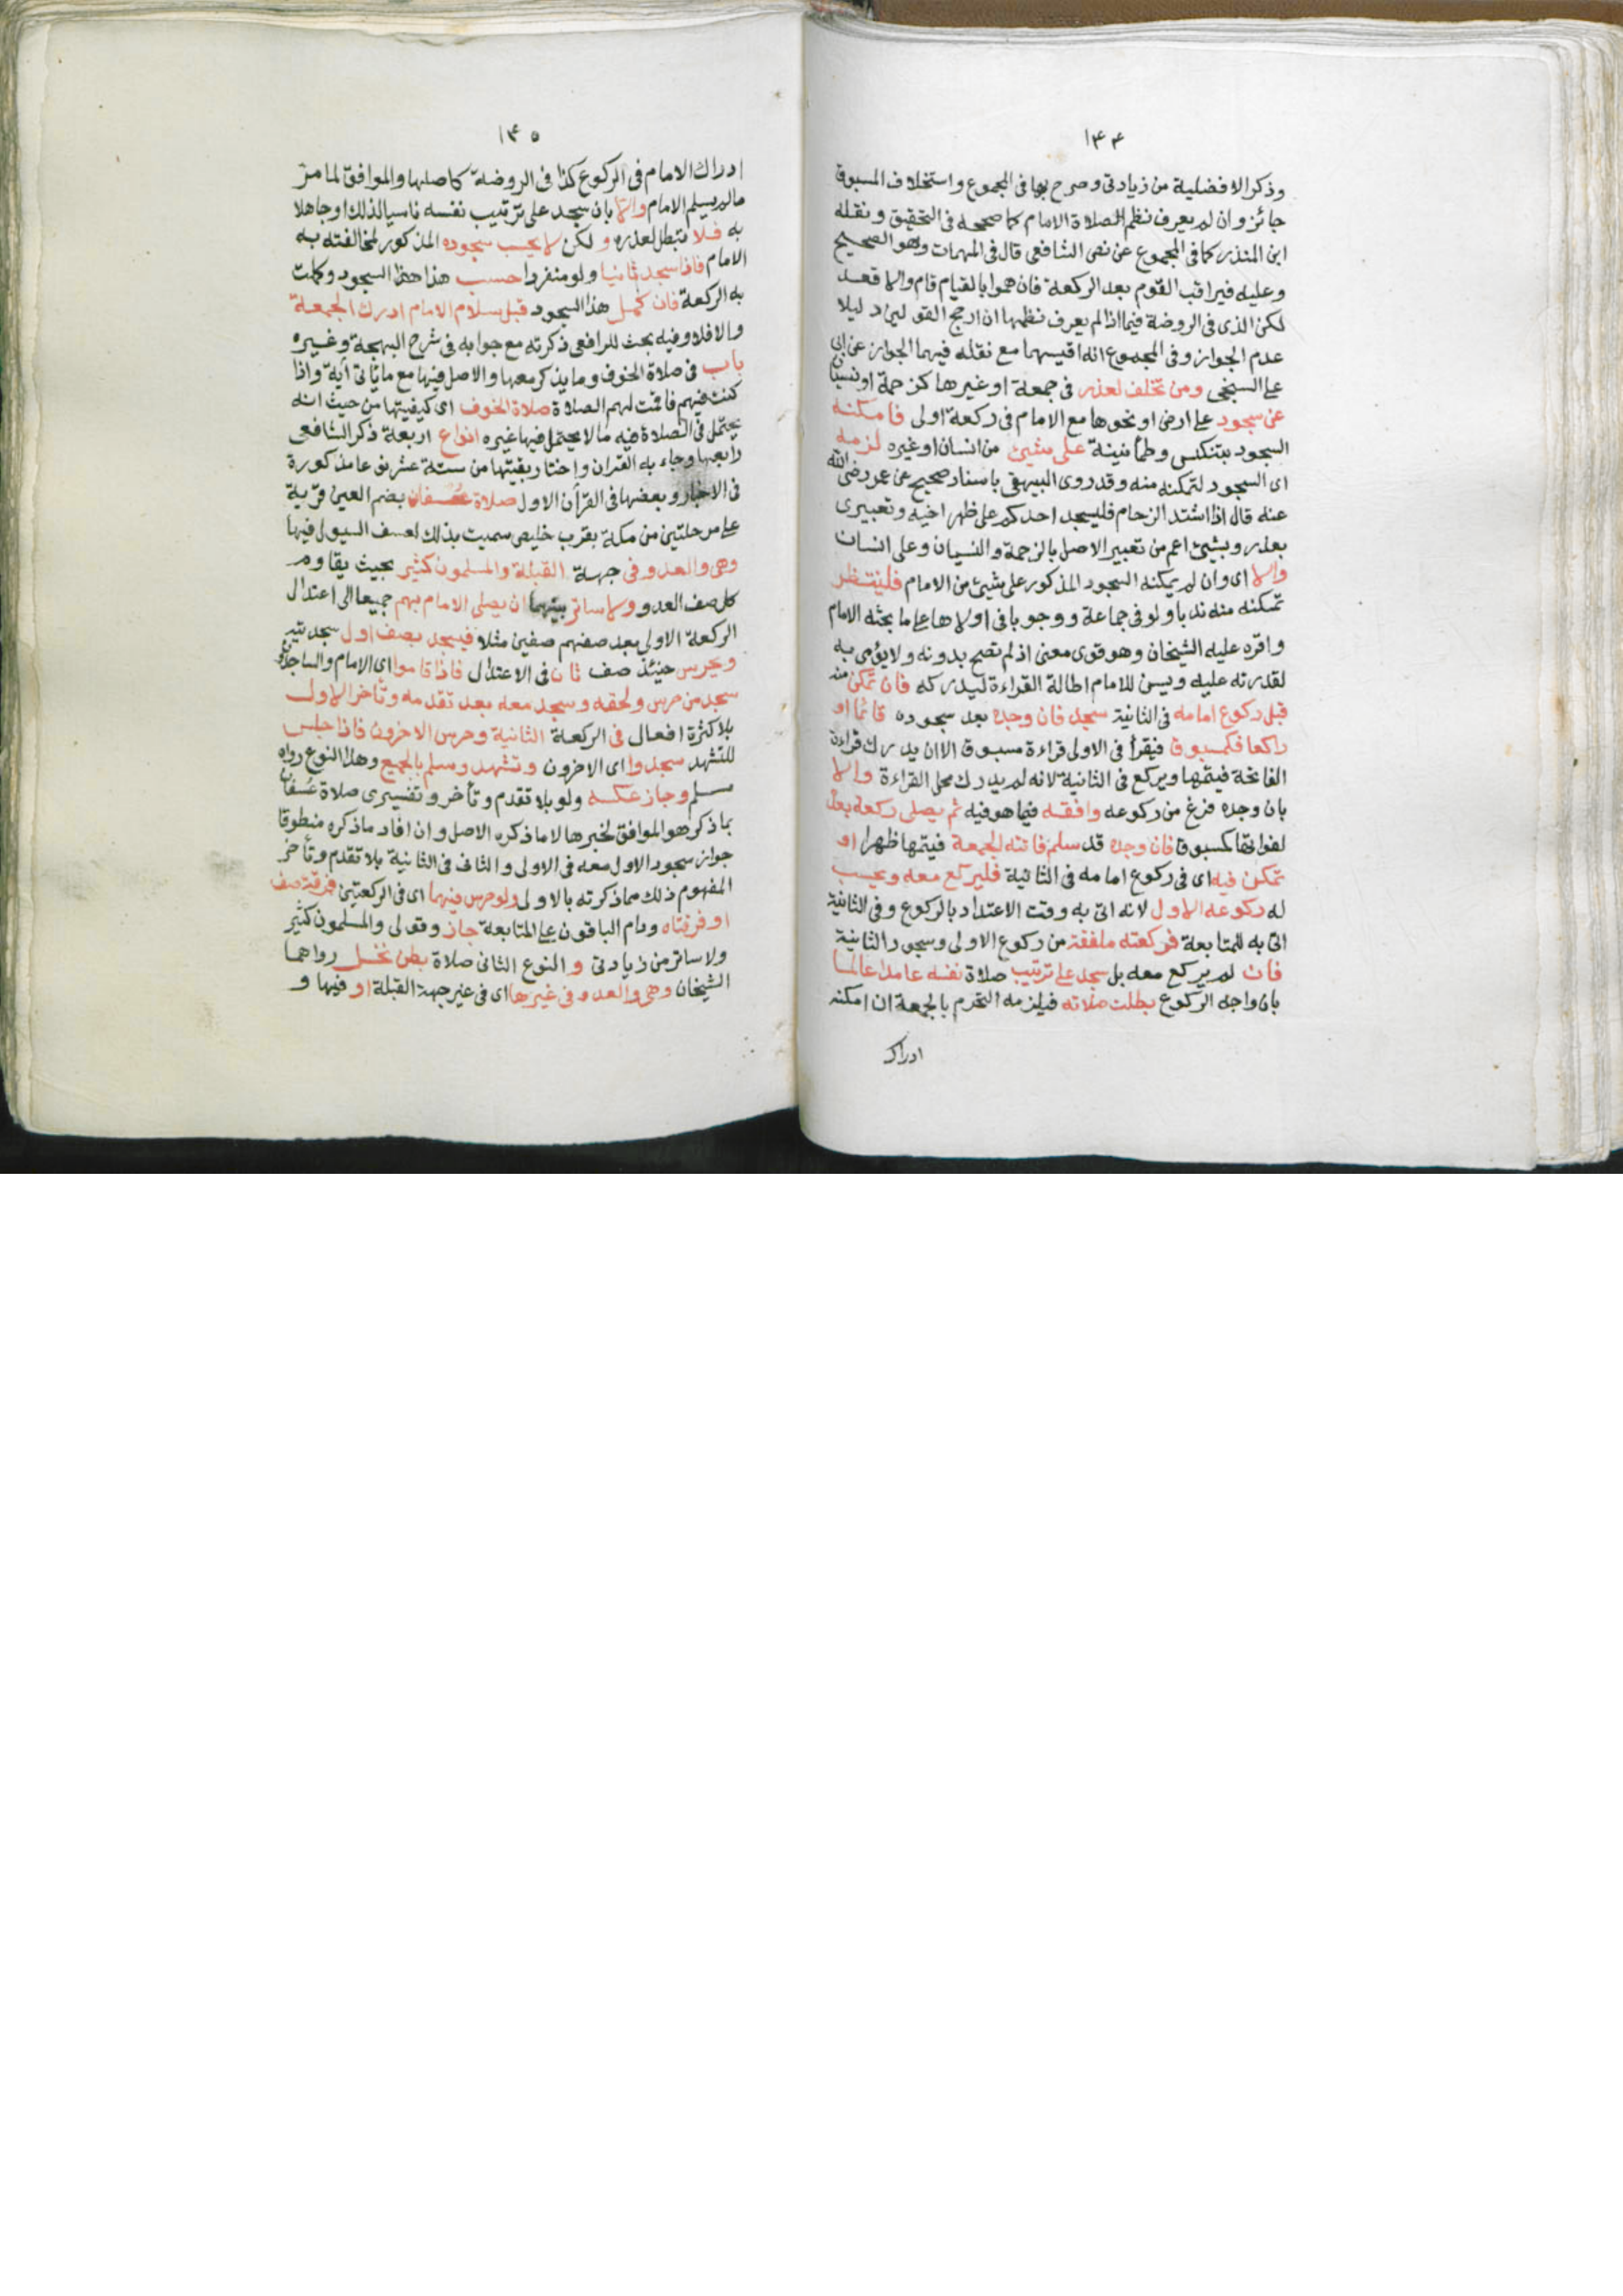 ١٤٤
وذكر الافضلية من زيادتى وصرح بها فى المجموع واستخلاف المسبوق
جائز وان لم يعرف نظم الصلاة الامام كما صححه فى التحقيق ونقله
ابن المنذر كما فى المجموع عن نص الشافعى قال فى المهمات وهو الصحيح
وعليه فيراقب القوم بعد الركعة فان هموا بالقيام قام والا قعد
لكن الذى فى الروضة فيما اذا لم يعرف نظمها ان ارجح القولين دليلا
عدم الجواز وفى المجموع انه اقيسهما مع نقله فيهما الجواز عن ابى
على السنجى ومن تخلف لعذر فى جمعة او غيرها كزحمة او نسيان
عن سجود على ارض او نحوها مع الامام فى ركعة اولى فامكنه
السجود بتنكس وطمأنينة على شيئ من انسان او غيره لزمه
اى السجود لتمكنه منه وقد روى البيهقى باسناد صحيح عن عمر رضى الله
عنه قال اذا اشتد الزحام فليسجد احدكم على ظهر اخيه وتعبيرى
بعذر وبشيئ اعم من تعبير الاصل بالزحمة والنسيان وعلى انسان
والا اى وان لم يمكنه السجود المذكور على شيئ من الامام فلينتظر
تمكنه منه ندبا ولو فى جماعة ووجوبا فى اولاها على ما بحثه الامام
واقره عليه الشيخان وهو قوى معنى اذ لم تصح بدونه ولا يؤمى به
لقدرته عليه ويسن للامام اطالة القراءة ليدركه فان تمكن منه
قبل ركوع امامه فى الثانية سجد فان وجده بعد سجوده قائما او
راكعا فكمسبوق فيقرأ فى الاولى قراءة مسبوق الا ان يدرك قراءة
الفاتحة فيتمها ويركع فى الثانية لانه لم يدرك محل القراءة والا
بان وجده فرغ من ركوعه وافقه فيما هو فيه ثم يصلى ركعة بعد
لفواتها كمسبوق فان وجده قد سلم فاتته الجمعة فيتمها ظهرا او
تمكن فيه اى فى ركوع امامه فى الثانية فليركع معه ويحسب
له ركوعه الاول لانه اتى به وقت الاعتداد بالركوع وفى الثانية
اتى به للمتابعة فركعته ملفقة من ركوع الاولى وسجود الثانية
فان لم يركع معه بل سجد على ترتيب صلاة نفسه عامدا عالما
بان واجبه الركوع بطلت صلاته فيلزمه التحرم بالجمعة ان امكنه
ادراك
١٤٥
ادراك الامام فى الركوع كذا فى الروضة كاصلها والموافق لما مر
ما لم يسلم الامام والا بان سجد على ترتيب نفسه ناسيا لذلك او جاهلا
به فلا تبطل لعذره و لكن لا يحسب سجوده المذكور لمخالفته به
الامام فاذا سجد ثانيا ولو منفردا حسب هذا السجود وكملت
به الركعة فان كمل هذا السجود قبل سلام الامام ادرك الجمعة
والا فلا وفيه بحث للرافعى ذكرته مع جوابه فى شرح البهجة وغيره
باب فى صلاة الخوف وما يذكر معها والاصل فيها مع ما يأتى أية واذا
كنت فيهم فاقمت لهم الصلاة صلاة الخوف اى كيفيتها من حيث انه
يحتمل فى الصلاة فيه ما لا يحتمل فيها غيره انواع اربعة ذكر الشافعى
رابعها وجاء به القران واختار بقيتها من ستة عشر نوعا مذكورة
فى الاخبار وبعضها فى القرأن الاول صلاة عسفان بضم العين قرية
على مرحلتين من مكة بقرب خليص سميت بذلك لعسف السيول فيها
وهى والعدو فى جهة القبلة والمسلمون كثير بحيث يقاوم
كل صف العدو ولا ساتر بينهما ان يصلى الامام بهم جميعا الى اعتدال
الركعة الاولى بعد صفهم صفين مثلا فيسجد بصف اول سجدتيه
ويحرس حينئذ صف ثان فى الاعتدال فاذا قاموا اى الامام والساجدون
سجد من حرس ولحقه وسجد معه بعد تقدمه وتأخر الاول
بلا كثرة افعال فى الركعة الثانية وحرس الاخرون فاذا جلس
للتشهد سجدوا اى الاخرون وتشهد وسلم بالجميع وهذا النوع رواه
مسلم وجاز عكسه ولو بلا تقدم وتأخر وتفسيرى صلاة عسفان
بما ذكر هو الموافق لخبرها لا ما ذكره الاصل وان افاد ما ذكره منطوقا
جواز سجود الاول معه فى الاولى والثانى فى الثانية بلا تقدم وتأخر
المفهوم ذلك مما ذكرته بالاولى ولو حرس فيهما اى فى الركعتين فرقة صف
او فرقتاه ودام الباقون على المتابعة جاز وقولى والمسلمون كثير
ولا ساتر من زيادتى و النوع الثانى صلاة بطن نخل رواهما
الشيخان وهى والعدو فى غيرها اى فى غير جهة القبلة او فيها و